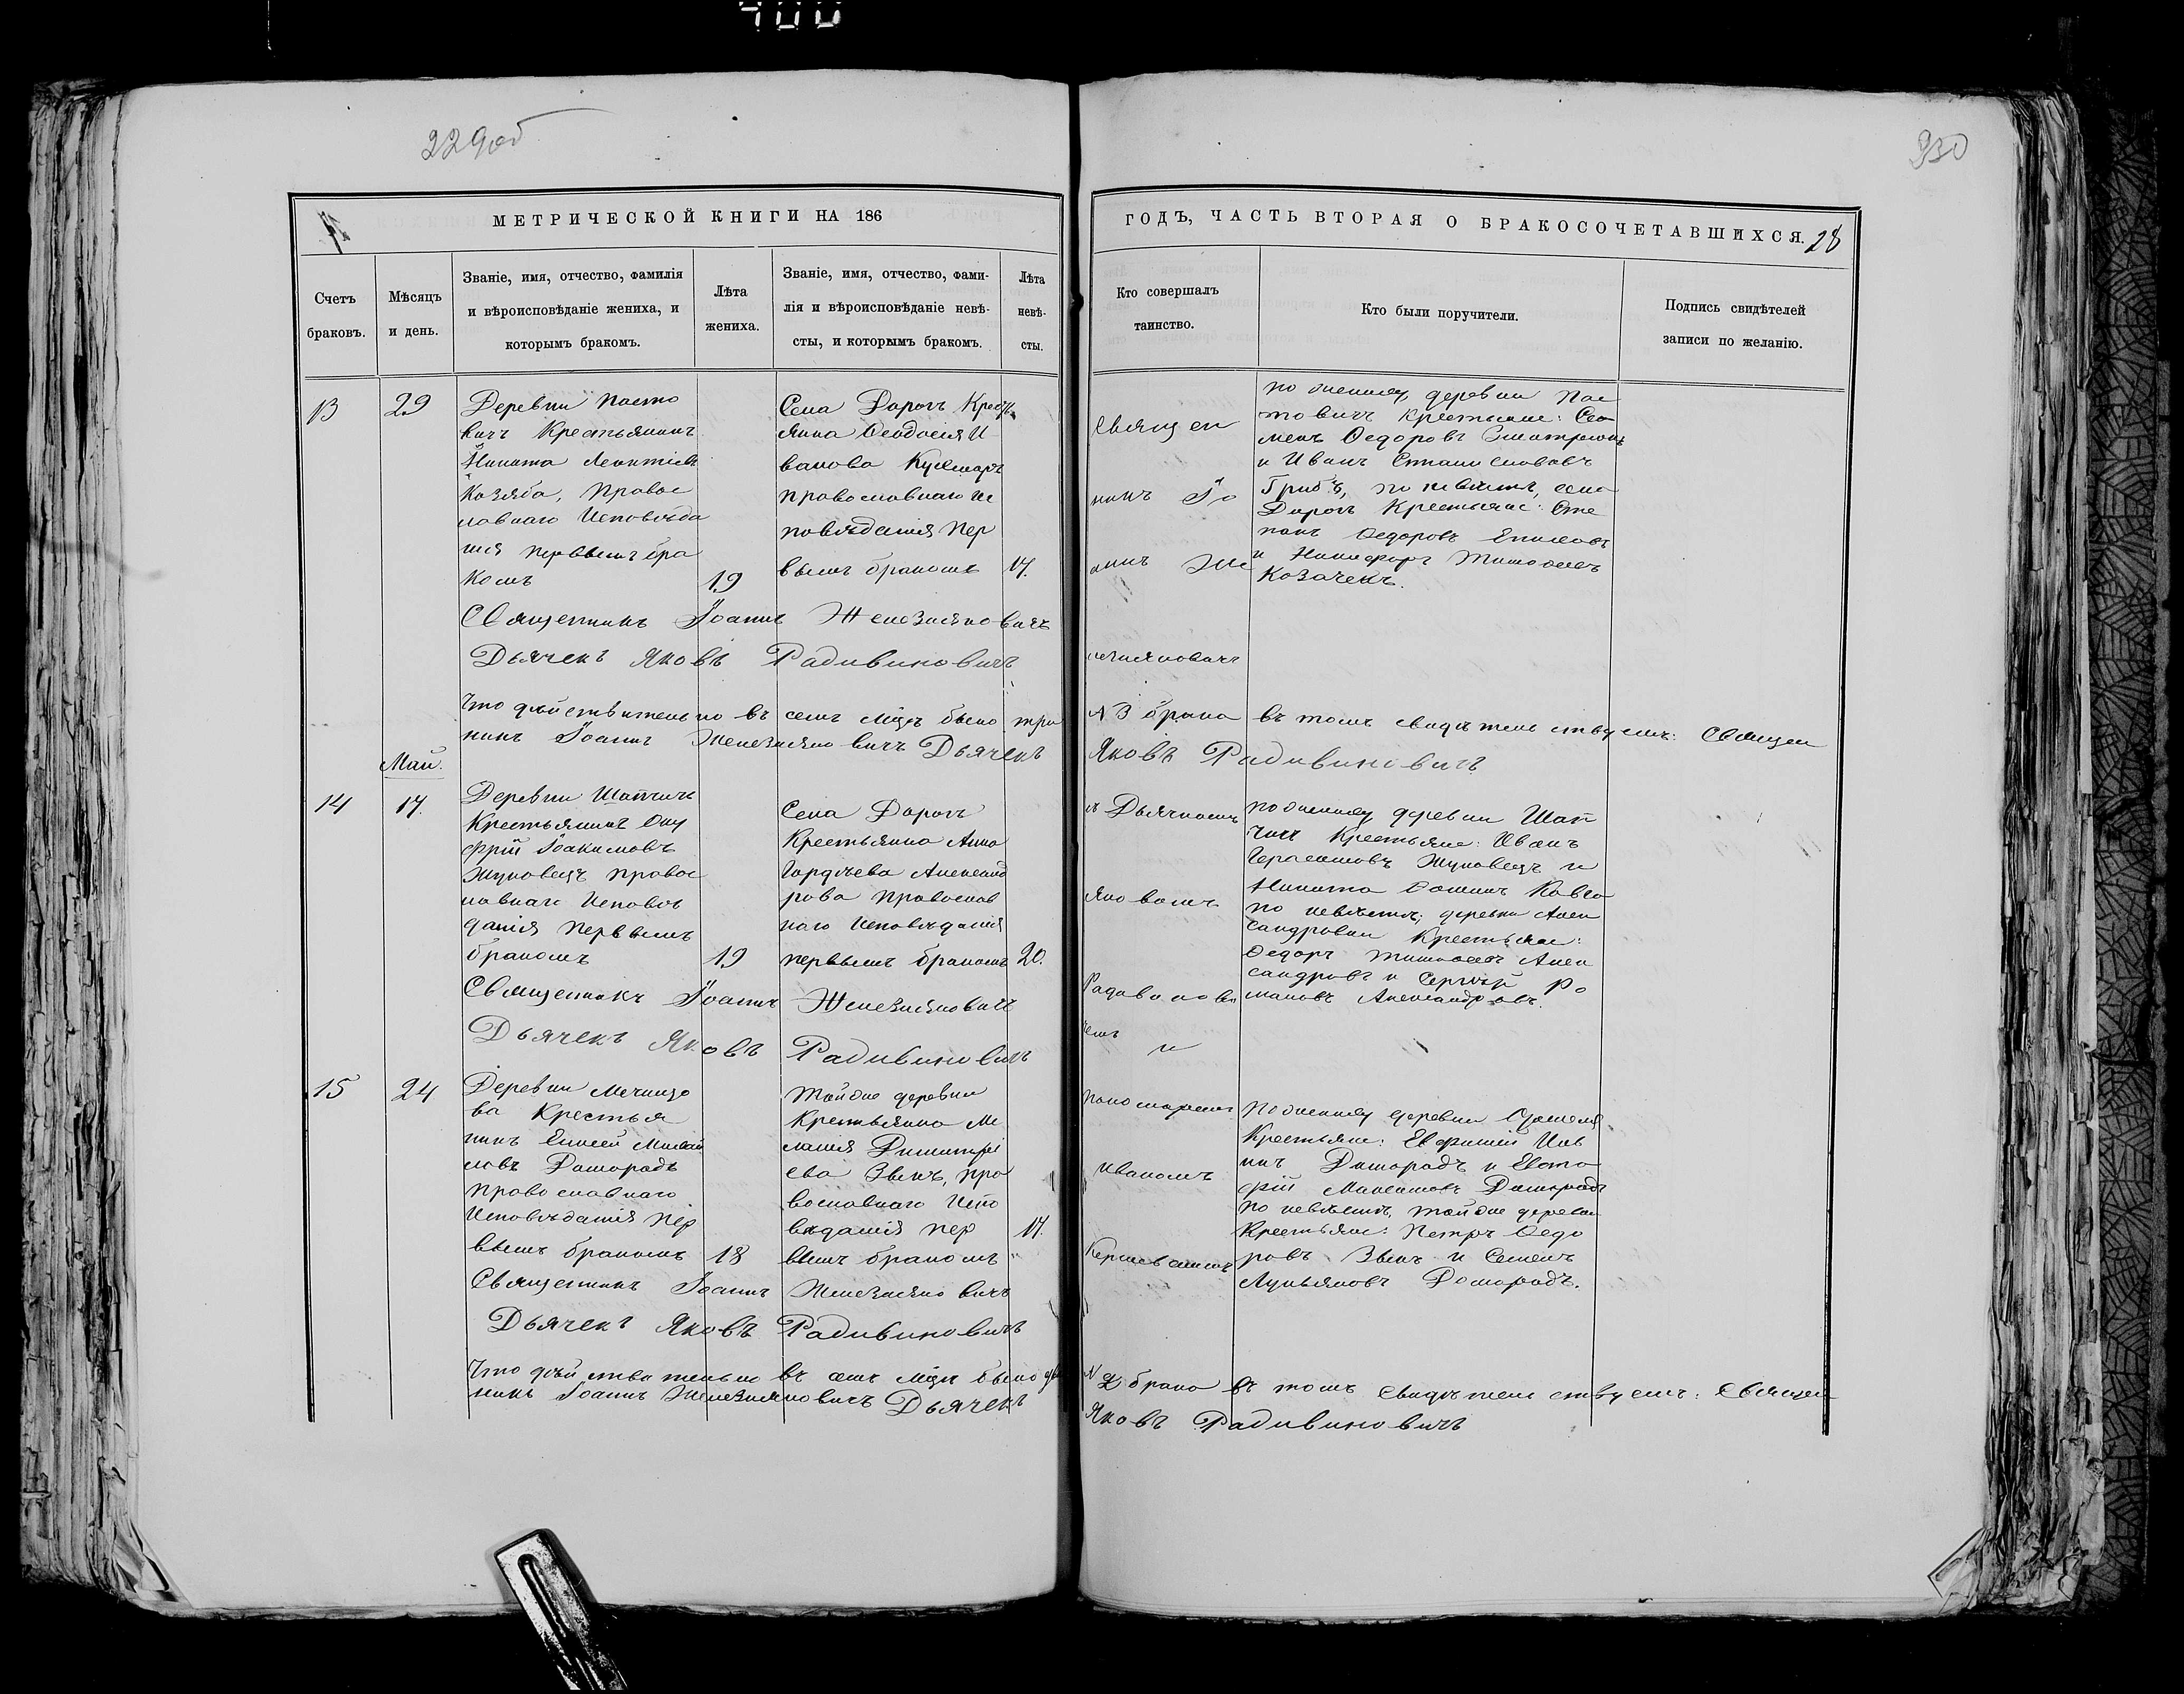 400
229об
930
МЕТРИЧЕСКОЙ КНИГИ НА 186
ГОДЪ, ЧАСТЬ ВТОРАЯ О БРАКОСОЧЕТАВШИХСЯ.
28
Счетъ
браковъ.
Мѣсяцъ
и день.
Званіе, имя, отчество, фамилія
и вѣроисповѣданіе жениха, и
которымъ бракомъ.
Лѣта
жениха.
Званіе, имя, отчество, фами-
лія и вѣроисповѣданіе невѣ-
сты, и которымъ бракомъ.
Лѣта
невѣ-
сты.
Кто совершалъ
таинство.
Кто были поручители.
Подпись свидѣтелей
записи по желанію.
13
29
Деревни Пасто
вичъ Крестьянинъ
Никита Леонтіевъ
Козяба, Правос
лавнаго Исповѣда
нія первымъ бра
комъ
19
Села Дорогъ Кресть
янка Феодосія И
ванова
православнаго Ис
повѣданія пер
вымъ бракомъ
17.
Священ
никъ Іо
аннъ Же
лезняковичъ
по женихѣ, деревни Пас
товичъ Крестьяне: Се
менъ Федоровъ
и Иванъ Станиславовъ
Грибъ, по невѣстѣ, села
Дорогъ Крестьяне: Сте
панъ Федоровъ
и Никифоръ Тимофеевъ
Козачекъ.
Священникъ Іоаннъ Железняковичъ
Дьячекъ Яковъ Радивиновичъ
Что дѣйствительно въ семъ мцѣ было три
N 3 брака въ томъ свидѣтельствуемъ: Священ
никъ Іоаннъ Железняковичъ Дьячекъ
Яковъ Радивиновичъ
Май.
14
17.
Деревни Шапчичъ
Крестьянинъ Ону
фрій Іоакимовъ
Жуковецъ правос
лавнаго Исповѣ
данія первымъ
бракомъ
19
Села Дорогъ
Крестьянка Анна
Гордѣева Александ
рова Православ
наго Исповѣданія
первымъ бракомъ
20.
съ Дьячкомъ
Яковомъ
чемъ
и
по женихѣ деревни Шап
чичъ Крестьяне: Иванъ
Герасимовъ Жуковецъ и
Никита
по невѣстѣ; деревни Алек
сандровки Крестьяне:
Федоръ Тимофеевъ Алек
сандровъ и Сергѣй Ро
мановъ Александровъ.
Священникъ Іоаннъ Железняковичъ
Дьячекъ Яковъ Радивиновичъ
15
24
Деревни
Крестья
нинъ Елисей Михай
ловъ Доморадъ
православнаго
Исповѣданія пер
вымъ бракомъ
18
Той же деревни
Крестьянка Ме
ланія Димитрі
ева Звикъ, пра
вославнаго Испо
вѣданія пер
вымъ бракомъ
17.
пономаремъ
Иваномъ
по женихѣ деревни
Крестьяне: Евфимій
Доморадъ и Евста
фій Максимовъ Доморадъ
по невѣстѣ, той же деревни
Крестьяне: Петръ Федо
ровъ Звикъ и Семенъ
Лукьяновъ Доморадъ.
Священникъ Іоаннъ Железняковичъ
Дьячекъ Яковъ Радивиновичъ
Что дѣйствительно въ семъ мцѣ было два
N 2 брака въ томъ свидѣтельствуемъ: Священ
никъ Іоаннъ Железняковичъ Дьячекъ
Яковъ Радивиновичъ